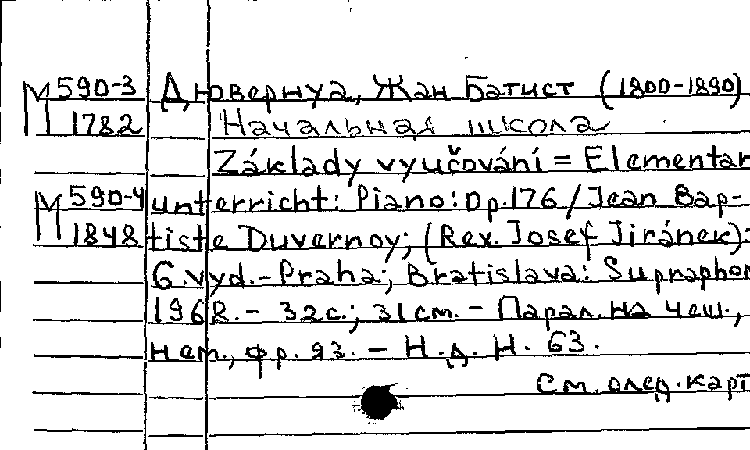 М 590-3 Дювернуа, Жан Батист (1800-1890)
1782 Начальная школа
Základy vyučování = Elementar
М 590-4 unterricht: Piano: Op.176 / Jean Bap-
1848 tiste Duvernoy; (Rev. Josef Jiránek).-
6.vyd.-Praha; Bratislava: Supraphon
1968.- 32с.; 31см. - Парал. на чеш.,
нем., фр. яз. - Н.д. Н. 63.
См. след. карт